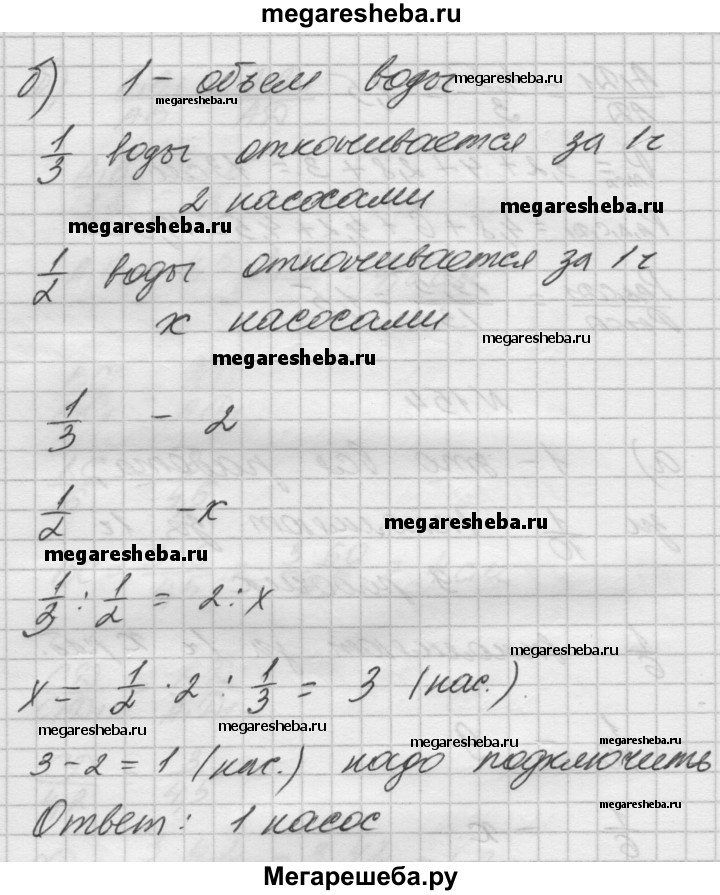 megaresheba.ru
б) 1 – объем воды megaresheba.ru
megaresheba.ru megaresheba.ru
1/3 воды откачивается за 1 ч
2 насосами megaresheba.ru
megaresheba.ru
1/2 воды откачивается за 1 ч
x насосами megaresheba.ru
megaresheba.ru
1/3 – 2
1/2 – x
megaresheba.ru
megaresheba.ru
1/3 : 1/2 = 2 : x
megaresheba.ru
x = 1/2 · 2 : 1/3 = 3 (нас.)
megaresheba.ru megaresheba.ru megaresheba.ru megaresheba.ru
3 – 2 = 1 (нас.) надо подключить
megaresheba.ru
Ответ: 1 насос
Мегарешеба.ру